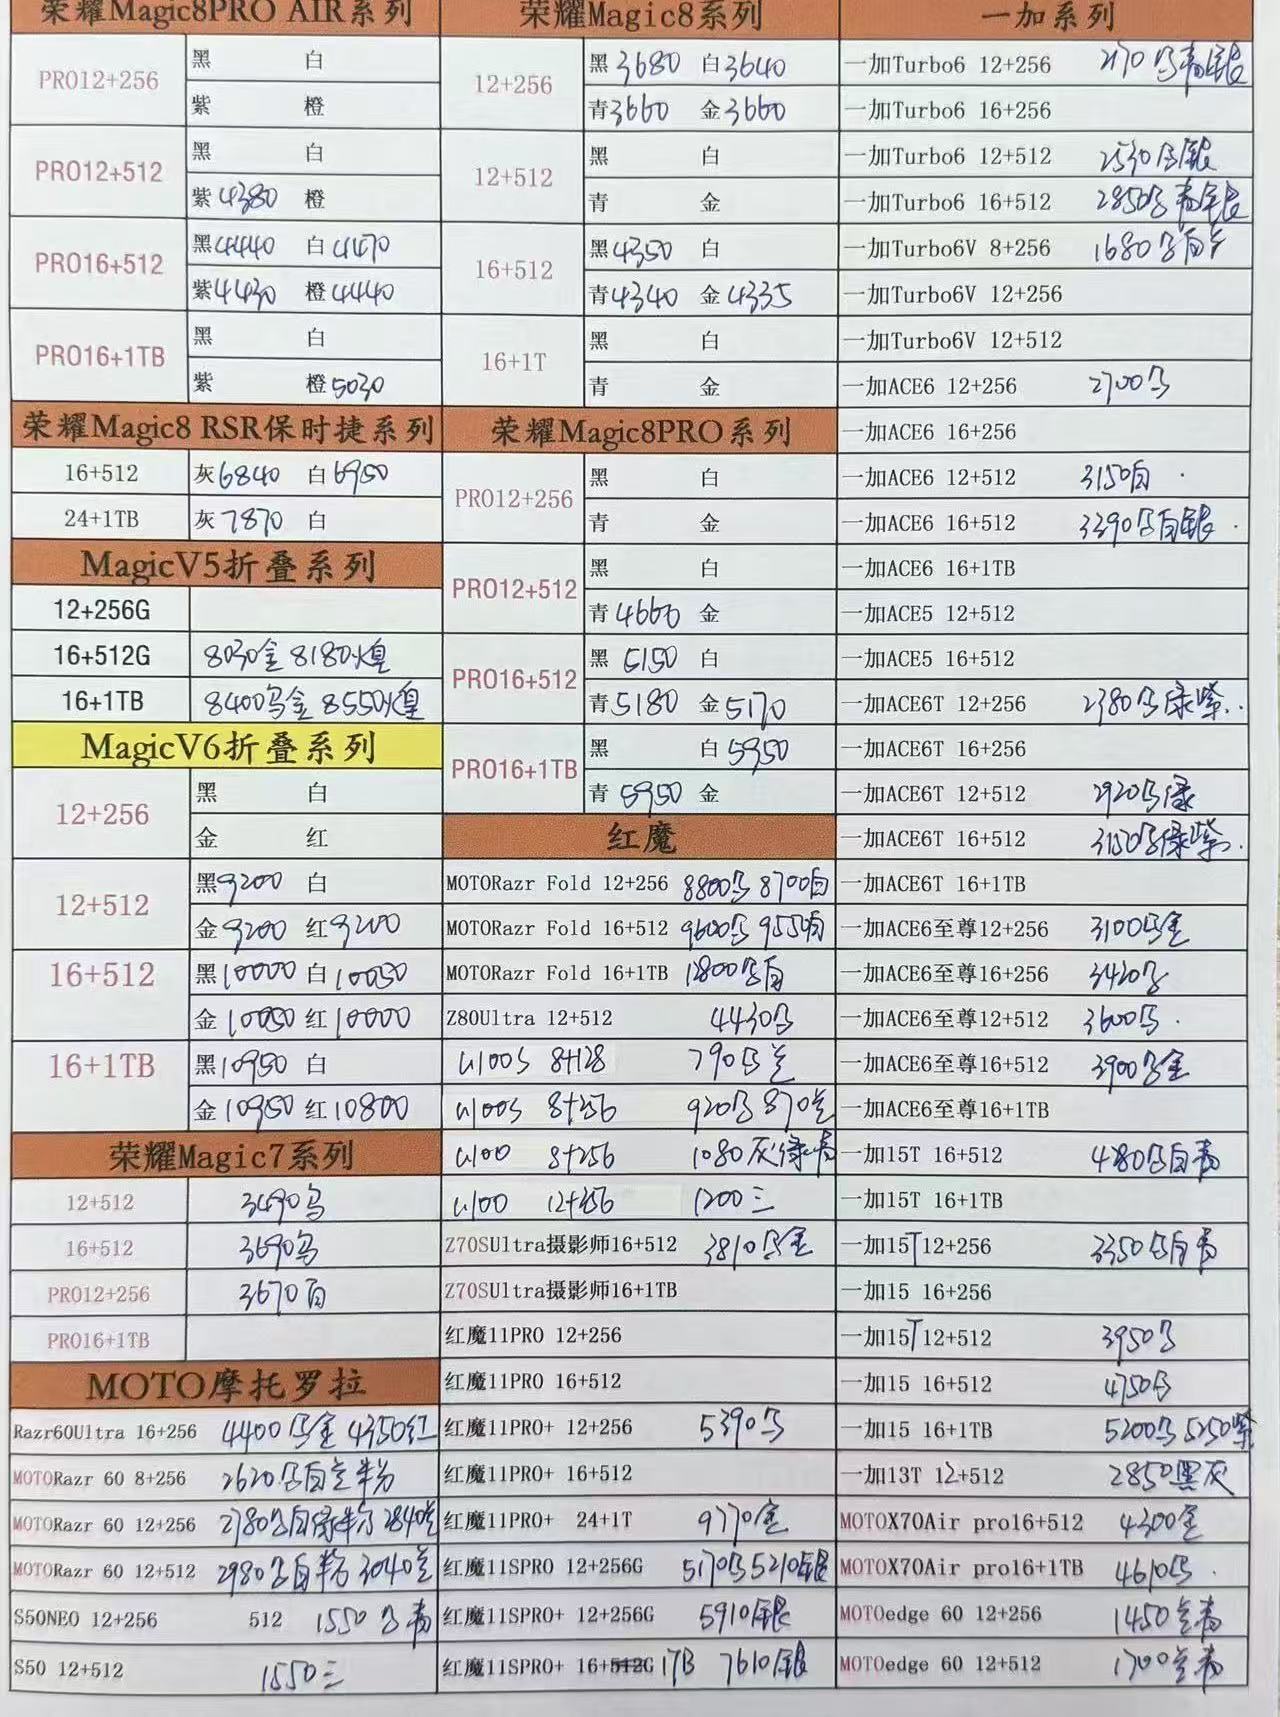 荣耀Magic8PRO AIR系列
PRO12+256
黑 白
紫 橙
PRO12+512
黑 白
紫4380 橙
PRO16+512
黑4440 白4470
紫4430 橙4440
PRO16+1TB
黑 白
紫 橙5030
荣耀Magic8 RSR保时捷系列
16+512 灰6840 白6950
24+1TB 灰7870 白
MagicV5折叠系列
12+256G
16+512G 8030金 8180火皇
16+1TB 8400乌金 8550火皇
MagicV6折叠系列
12+256
黑 白
金 红
12+512
黑9200 白
金9200 红9200
16+512
黑10000 白10050
金10050 红10000
16+1TB
黑10950 白
金10950 红10800
荣耀Magic7系列
12+512 3490乌
16+512 3690乌
PRO12+256 3670白
PRO16+1TB
MOTO摩托罗拉
Razr60Ultra 16+256 4400乌金 4350红
MOTORazr 60 8+256 2620乌白兰粉
MOTORazr 60 12+256 2780乌白绿粉 2840兰
MOTORazr 60 12+512 2980乌白粉 3040兰
S50NEO 12+256 512 1550乌青
S50 12+512 1550三
荣耀Magic8系列
12+256
黑3680 白3640
青3660 金3660
12+512
黑 白
青 金
16+512
黑4350 白
青4340 金4335
16+1T
黑 白
青 金
荣耀Magic8PRO系列
PRO12+256
黑 白
青 金
PRO12+512
黑 白
青4660 金
PRO16+512
黑5150 白
青5180 金5170
PRO16+1TB
黑 白5950
青5950 金
红魔
MOTORazr Fold 12+256 8800乌 8700白
MOTORazr Fold 16+512 9600乌 9550白
MOTORazr Fold 16+1TB 乌白
Z80Ultra 12+512 4430乌
U100S 8+128 790乌兰
U100S 8+256 920乌 870兰
U100 8+256 1080灰绿青
U100 12+256 1200三
Z70SUltra摄影师16+512 3810乌金
Z70SUltra摄影师16+1TB
红魔11PRO 12+256
红魔11PRO 16+512
红魔11PRO+ 12+256 5390乌
红魔11PRO+ 16+512
红魔11PRO+ 24+1T 9770金
红魔11SPRO 12+256G 5170乌 5210银
红魔11SPRO+ 12+256G 5910银
红魔11SPRO+ 16+512G 1TB 7610银
一加系列
一加Turbo6 12+256 2170乌青银
一加Turbo6 16+256
一加Turbo6 12+512 2530乌银
一加Turbo6 16+512 2850乌青银
一加Turbo6V 8+256 1680乌白兰
一加Turbo6V 12+256
一加Turbo6V 12+512
一加ACE6 12+256 2700乌
一加ACE6 16+256
一加ACE6 12+512 3150白
一加ACE6 16+512 3390乌白银
一加ACE6 16+1TB
一加ACE5 12+512
一加ACE5 16+512
一加ACE6T 12+256 2380乌绿紫
一加ACE6T 16+256
一加ACE6T 12+512 2920乌绿
一加ACE6T 16+512 3130乌绿紫
一加ACE6T 16+1TB
一加ACE6至尊12+256 3100乌金
一加ACE6至尊16+256 3420乌
一加ACE6至尊12+512 3600乌
一加ACE6至尊16+512 3900乌金
一加ACE6至尊16+1TB
一加15T 16+512 乌白青
一加15T 16+1TB
一加15T 12+256 3350乌白青
一加15 16+256
一加15T 12+512 3950乌
一加15 16+512 4750乌
一加15 16+1TB 5200乌 5250紫
一加13T 12+512 2850黑灰
MOTOX70Air pro16+512 4300金
MOTOX70Air pro16+1TB 4610乌
MOTOedge 60 12+256 1450兰青
MOTOedge 60 12+512 1700兰青